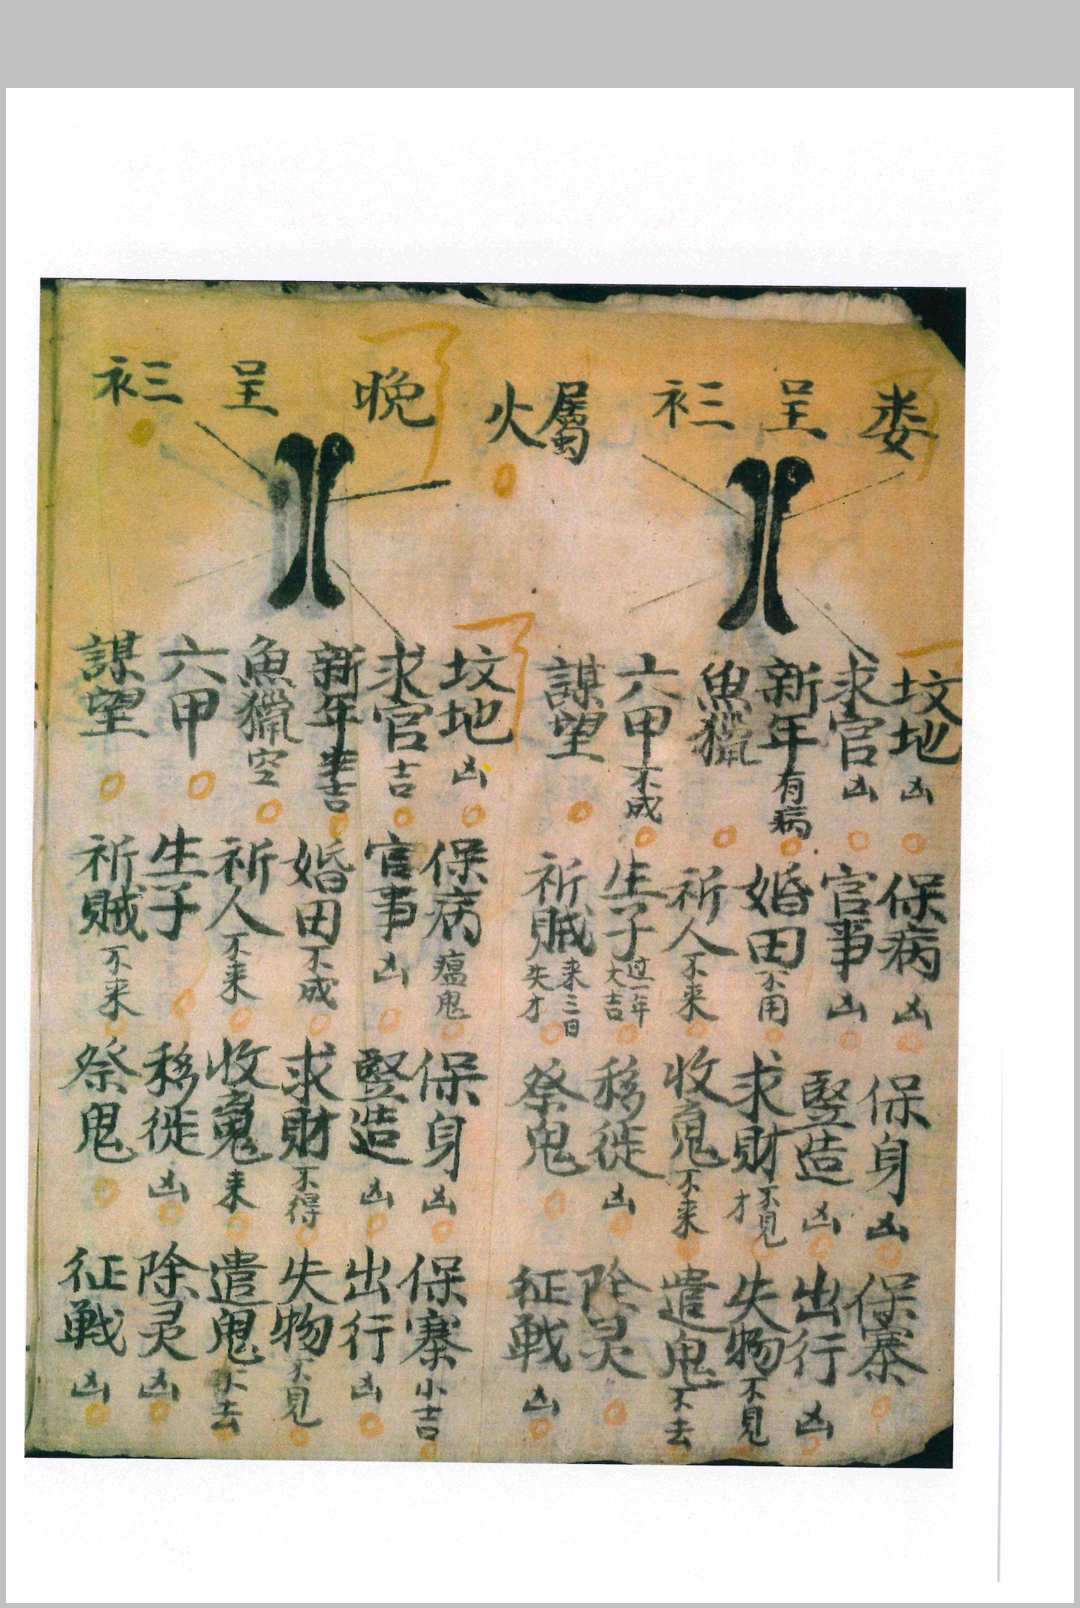 娄呈衤三
属火
坟地凶 保病凶 保身凶 保寨
求官凶 官事凶 竪造凶 出行凶
新年有病 婚田不用 求財不見才 失物不見
魚獵 祈人不来 收鬼不来 遣鬼不去
六甲不成 生子过一年大吉 移徙凶 除灵
謀望 祈贼来三日失才 祭鬼 征戦凶
晩呈衤三
坟地凶 保病瘟鬼 保身凶 保寨小吉
求官吉 官事凶 竪造凶 出行凶
新年半吉 婚田不成 求財不得 失物不見
魚獵空 祈人不来 收鬼来 遣鬼不去
六甲 生子 移徙凶 除灵凶
謀望 祈贼不来 祭鬼 征戦凶